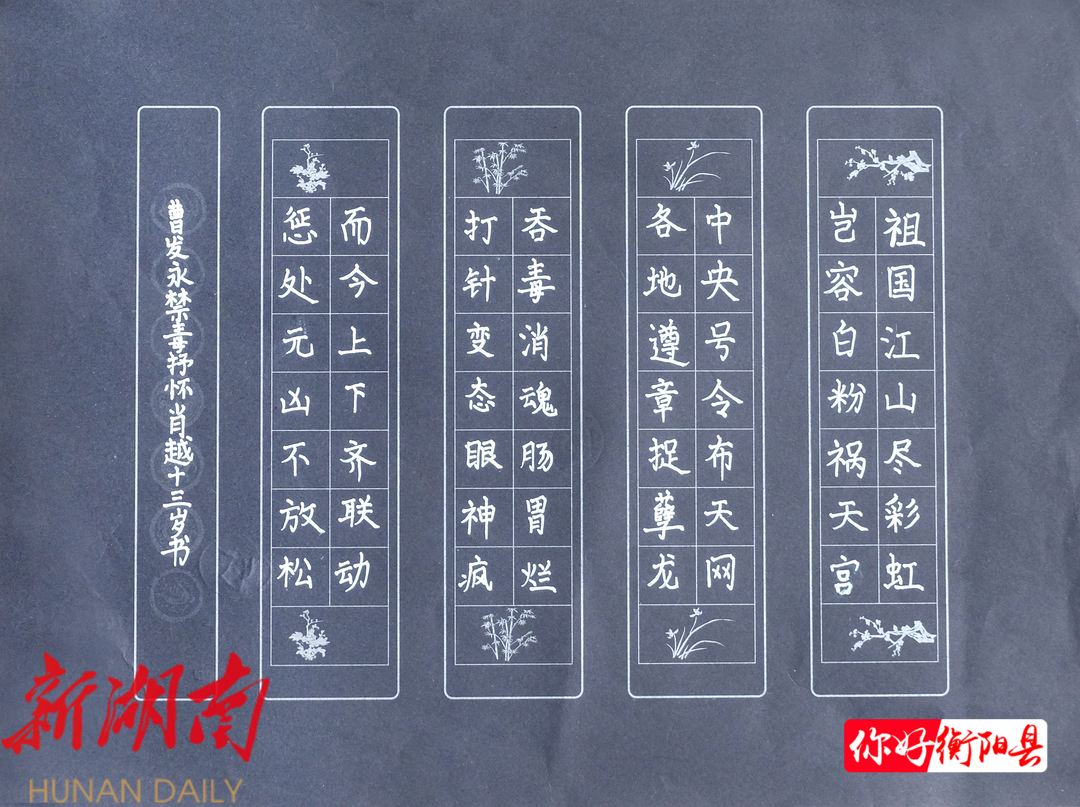 祖国江山尽彩虹
岂容白粉祸天宫
中央号令布天网
各地遵章捉孽龙
吞毒消魂肠胃烂
打针变态眼神疯
而今上下齐联动
惩处元凶不放松
曹发永禁毒抒怀肖越十三岁书
新湖南
HUNAN DAILY
你好衡阳县